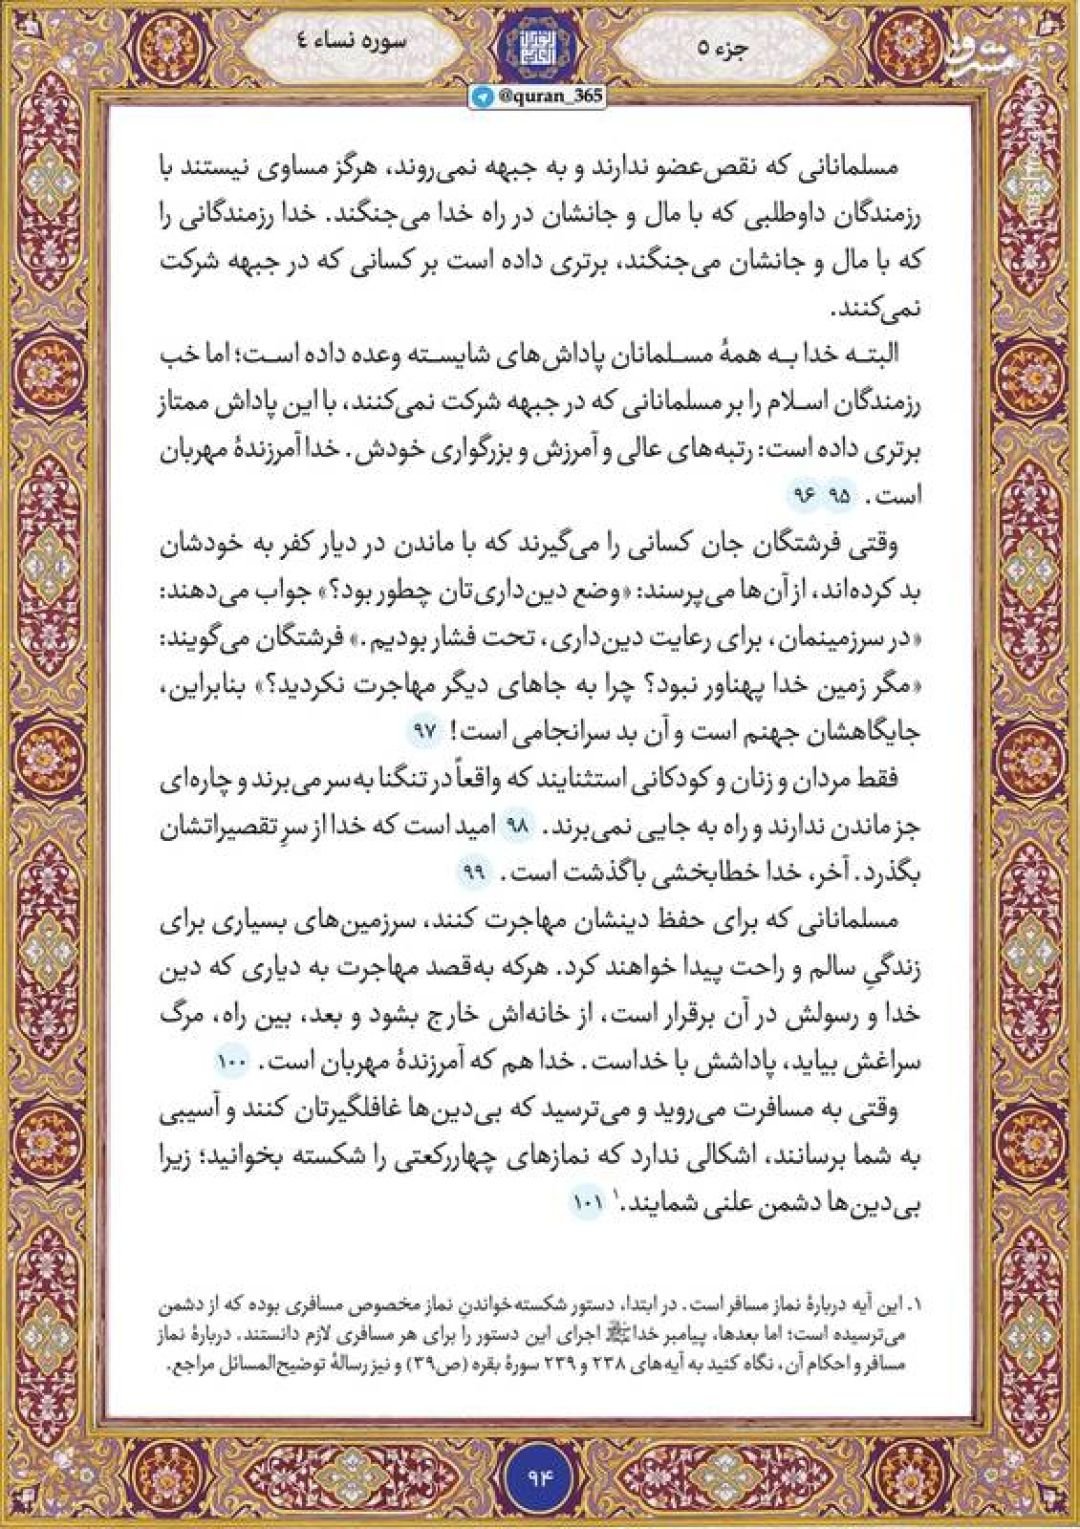 جزء ۵
سوره نساء ٤
مشرق
mashreghnews.ir
@quran_365
مسلمانانی که نقص‌عضو ندارند و به جبهه نمی‌روند، هرگز مساوی نیستند با
رزمندگان داوطلبی که با مال و جانشان در راه خدا می‌جنگند. خدا رزمندگانی را
که با مال و جانشان می‌جنگند، برتری داده است بر کسانی که در جبهه شرکت
نمی‌کنند.
البته خدا به همهٔ مسلمانان پاداش‌های شایسته وعده داده است؛ اما خب
رزمندگان اسلام را بر مسلمانانی که در جبهه شرکت نمی‌کنند، با این پاداش ممتاز
برتری داده است: رتبه‌های عالی و آمرزش و بزرگواری خودش. خدا آمرزندهٔ مهربان
است. ۹۵ ۹۶
وقتی فرشتگان جان کسانی را می‌گیرند که با ماندن در دیار کفر به خودشان
بد کرده‌اند، از آن‌ها می‌پرسند: «وضع دین‌داری‌تان چطور بود؟» جواب می‌دهند:
«در سرزمینمان، برای رعایت دین‌داری، تحت فشار بودیم.» فرشتگان می‌گویند:
«مگر زمین خدا پهناور نبود؟ چرا به جاهای دیگر مهاجرت نکردید؟» بنابراین،
جایگاهشان جهنم است و آن بد سرانجامی است! ۹۷
فقط مردان و زنان و کودکانی استثنایند که واقعاً در تنگنا به‌سر می‌برند و چاره‌ای
جز ماندن ندارند و راه به جایی نمی‌برند. ۹۸ امید است که خدا از سرِ تقصیراتشان
بگذرد. آخر، خدا خطابخشی باگذشت است. ۹۹
مسلمانانی که برای حفظ دینشان مهاجرت کنند، سرزمین‌های بسیاری برای
زندگیِ سالم و راحت پیدا خواهند کرد. هرکه به‌قصد مهاجرت به دیاری که دین
خدا و رسولش در آن برقرار است، از خانه‌اش خارج بشود و بعد، بین راه، مرگ
سراغش بیاید، پاداشش با خداست. خدا هم که آمرزندهٔ مهربان است. ۱۰۰
وقتی به مسافرت می‌روید و می‌ترسید که بی‌دین‌ها غافلگیرتان کنند و آسیبی
به شما برسانند، اشکالی ندارد که نمازهای چهاررکعتی را شکسته بخوانید؛ زیرا
بی‌دین‌ها دشمن علنی شمایند.۱ ۱۰۱
۱. این آیه دربارهٔ نماز مسافر است. در ابتدا، دستور شکسته‌خواندنِ نماز مخصوص مسافری بوده که از دشمن
می‌ترسیده است؛ اما بعدها، پیامبر خداﷺ اجرای این دستور را برای هر مسافری لازم دانستند. دربارهٔ نماز
مسافر و احکام آن، نگاه کنید به آیه‌های ۲۳۸ و ۲۳۹ سورهٔ بقره (ص۳۹) و نیز رسالهٔ توضیح‌المسائل مراجع.
۹۴